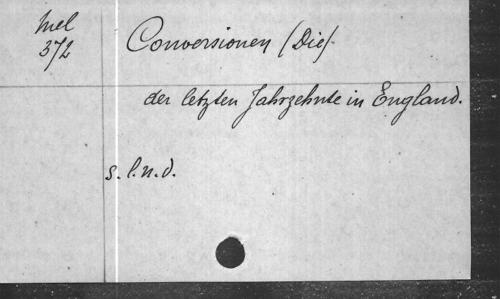 Mel
372
Conversionen (Die)
der letzten Jahrzehnte in England.
s. l. n. d.